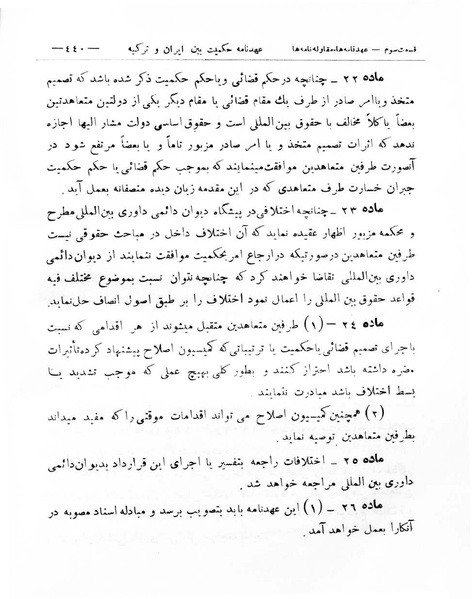 قسمت سوم — عهدنامه‌ها، مقاوله‌نامه‌ها عهدنامه حکمیت بین ایران و ترکیه —٤٤٠—
ماده ٢٢ ـ چنانچه درحکم قضائی ویاحکم حکمیت ذکر شده باشد که تصمیم
متخذ ویاامر صادر از طرف یك مقام قضائی یا مقام دیگر یکی از دولتین متعاهدتین
بعضاً یاکلاً مخالف با حقوق بین‌المللی است و حقوق اساسی دولت مشار الیها اجازه
ندهد که اثرات تصمیم متخذ و یا امر صادر مزبور تاماً و یا بعضاً مرتفع شود در
آنصورت طرفین متعاهدین موافقت مینمایند که بموجب حکم قضائی یا حکم حکمیت
جبران خسارت طرف متعاهدی که در این مقدمه زیان دیده منصفانه بعمل آید .
ماده ٢٣ ـ چنانچه اختلافی در پیشگاه دیوان دائمی داوری بین‌المللی مطرح
و محکمه مزبور اظهار عقیده نماید که آن اختلاف داخل در مباحث حقوقی نیست
طرفین متعاهدین درصورتیکه درارجاع امر بحکمیت موافقت ننمایند از دیوان‌دائمی
داوری بین‌المللی تقاضا خواهند کرد که چنانچه نتوان نسبت بموضوع مختلف فیه
قواعد حقوق بین المللی را اعمال نمود اختلاف را بر طبق اصول انصاف حل‌نماید.
ماده ٢٤ ـ (١) طرفین متعاهدین متقبل میشوند از هر اقدامی که نسبت
باجرای تصمیم قضائی یاحکمیت یا ترتیباتی‌که کمیسیون اصلاح پیشنهاد کرده‌تأثیرات
مضره داشته باشد احتراز کنند و بطور کلی بهیچ عملی که موجب تشدید یـا
بسط اختلاف باشد مبادرت ننمایند .
(٢) همچنین کمیسیون اصلاح می تواند اقدامات موقتی را که مفید میداند
بطرفین متعاهدین توصیه نماید .
ماده ٢٥ ـ اختلافات راجعه بتفسیر یا اجرای این قرارداد بدیوان‌دائمی
داوری بین المللی مراجعه خواهد شد .
ماده ٢٦ ـ (١) این عهدنامه باید بتصویب برسد و مبادله اسناد مصوبه در
آنکارا بعمل خواهد آمد .